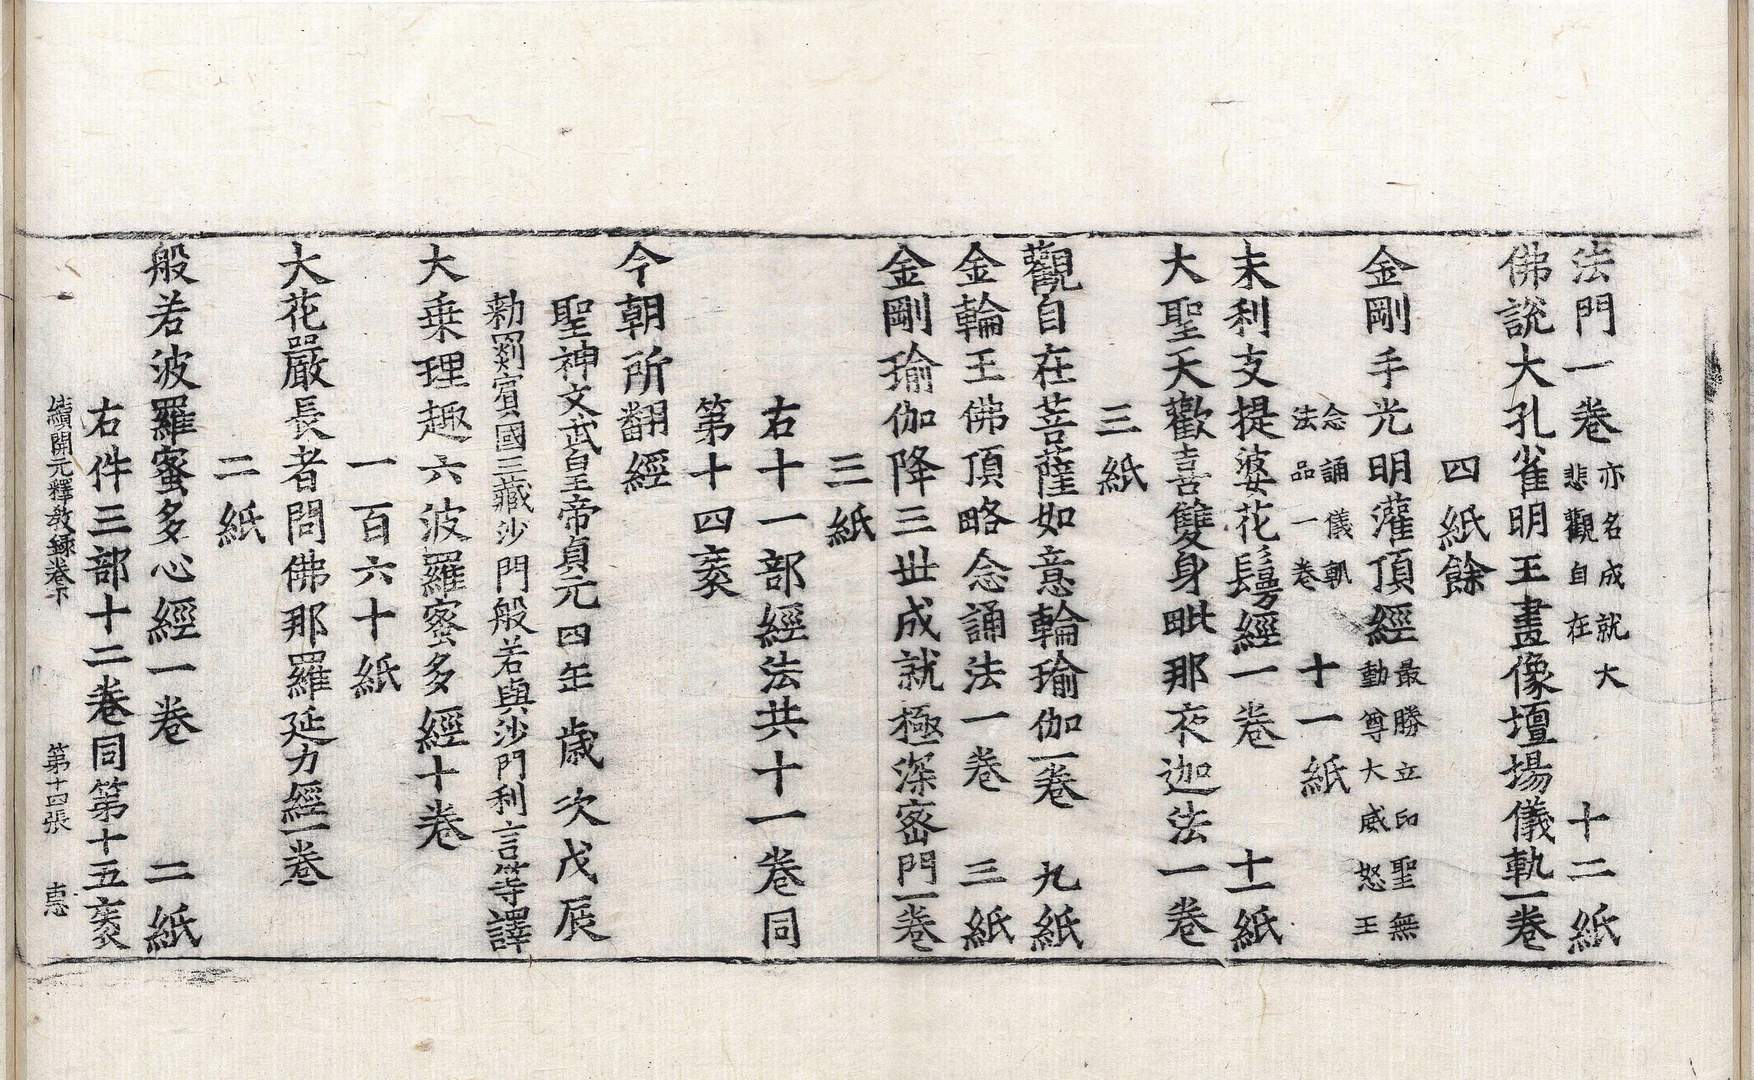 法門一卷 亦名成就大悲觀自在 十二紙
佛說大孔雀明王畫像壇場儀軌一卷
四紙餘
金剛手光明灌頂經 最勝立印聖無動尊大威怒王
念誦儀軌法品一卷 十一紙
末利支提婆花鬘經一卷 十一紙
大聖天歡喜雙身毗那夜迦法一卷
三紙
觀自在菩薩如意輪瑜伽一卷 九紙
金輪王佛頂略念誦法一卷 三紙
金剛瑜伽降三世成就極深密門一卷
三紙
右十一部經法共十一卷同
第十四袠
今朝所翻經
聖神文武皇帝貞元四年 歲次戊辰
勅罽賓國三藏沙門般若與沙門利言等譯
大乗理趣六波羅蜜多經十卷
一百六十紙
大花嚴長者問佛那羅延力經一卷
二紙
般若波羅蜜多心經一卷 二紙
右件三部十二卷同第十五袠
續開元釋教錄卷下 第十四張